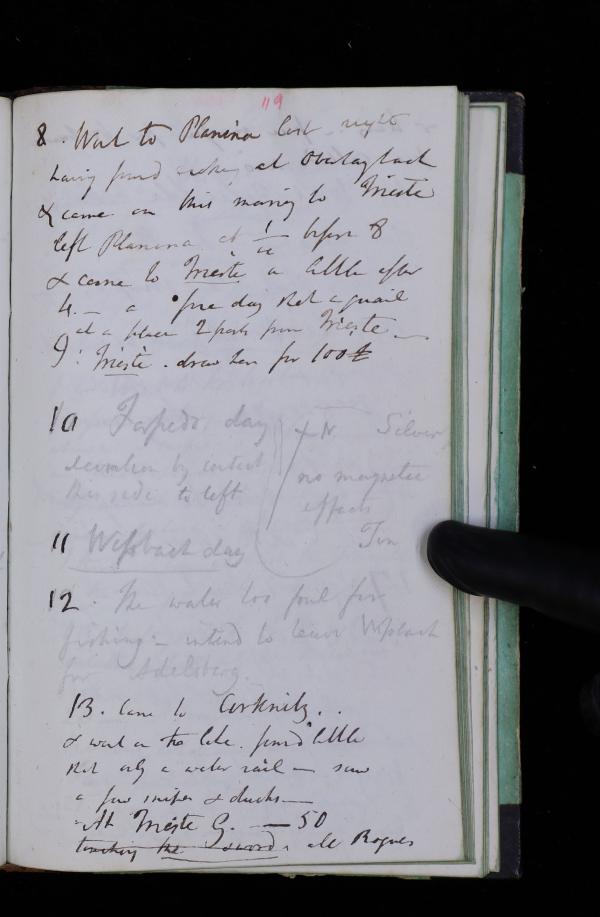 119
8. Went to Planina last night
having found at
& came on this morning to Trieste
left Planina at 1/4 before 8
& came to Trieste a little after
4. — a fine day shot a quail
at a place 2 posts from Trieste —
9: Trieste. drew here for 100£
10 Torpedo day
by contact
this side to left
+ N. Silver
no magnetic
effects
Tin
11 Wipbach day
12. The water too foul for
fishing - intend to leave Wipbach
for Adelsberg.
13. Came to Cirknitz..
& went on the lake. found little
shot only a water rail — saw
a few snipes & ducks —
At Trieste G. — 50
touching the sword. all Rogues